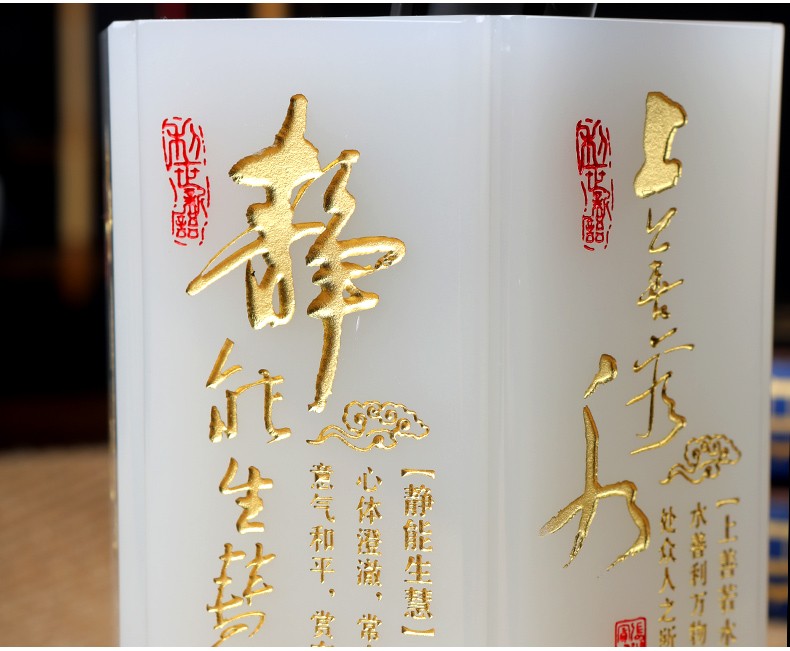 静能生慧
【静能生慧】
心体澄澈，常
意气和平，赏
上善若水
【上善若水
水善利万物
处众人之所